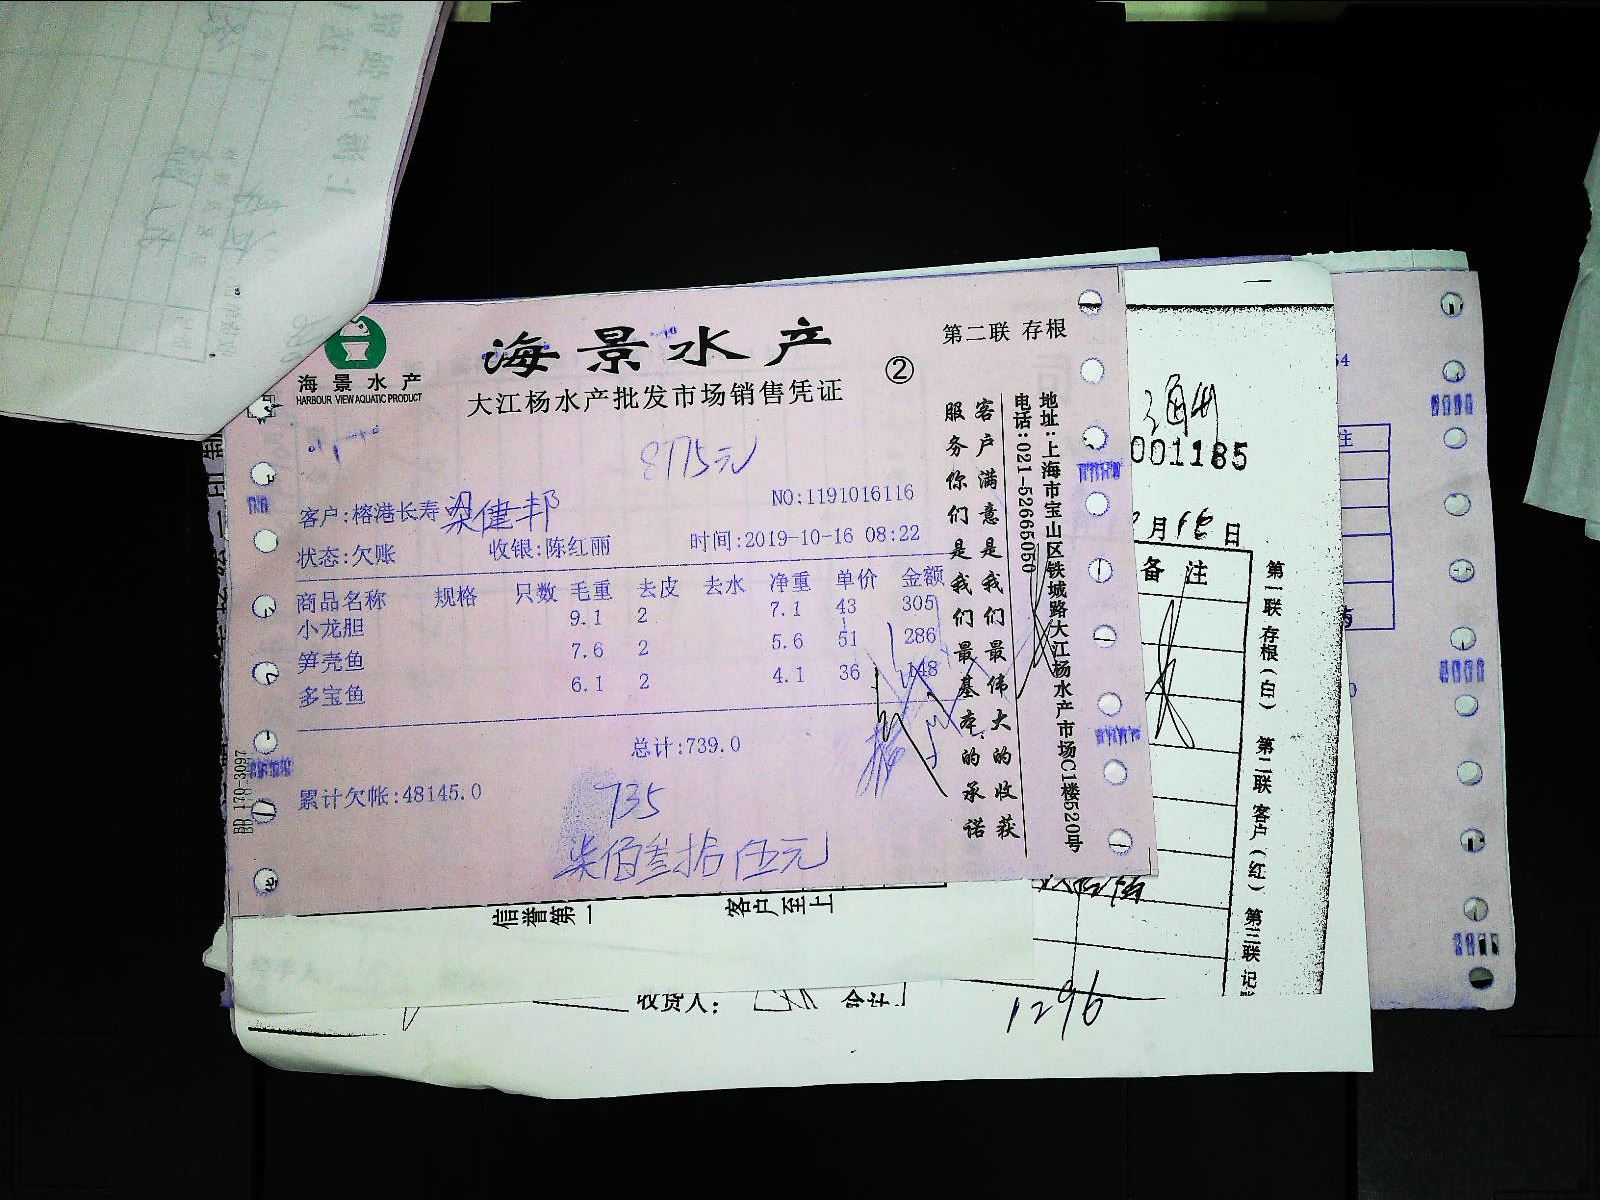 海景水产
HARBOUR VIEW AQUATIC PRODUCT
海景水产
大江杨水产批发市场销售凭证
②
第二联 存根
8775元
NO:1191016116
客户:榕港长寿 梁健邦
状态:欠账 收银:陈红丽 时间:2019-10-16 08:22
商品名称 规格 只数 毛重 去皮 去水 净重 单价 金额
小龙胆 9.1 2 7.1 43 305
笋壳鱼 7.6 2 5.6 51 286
多宝鱼 6.1 2 4.1 36 148
总计:739.0
累计欠帐:48145.0
735
柒佰叁拾伍元
BB 170-3097
地址:上海市宝山区铁城路大江杨水产市场C1楼520号
电话:021-52665050
客户满意是我们最伟大的收获
服务你们是我们最基本的承诺
001185
月16日
备注
第一联 存根(白) 第二联 客户(红) 第三联 记
信誉第一
客户至上
收货人:
1296